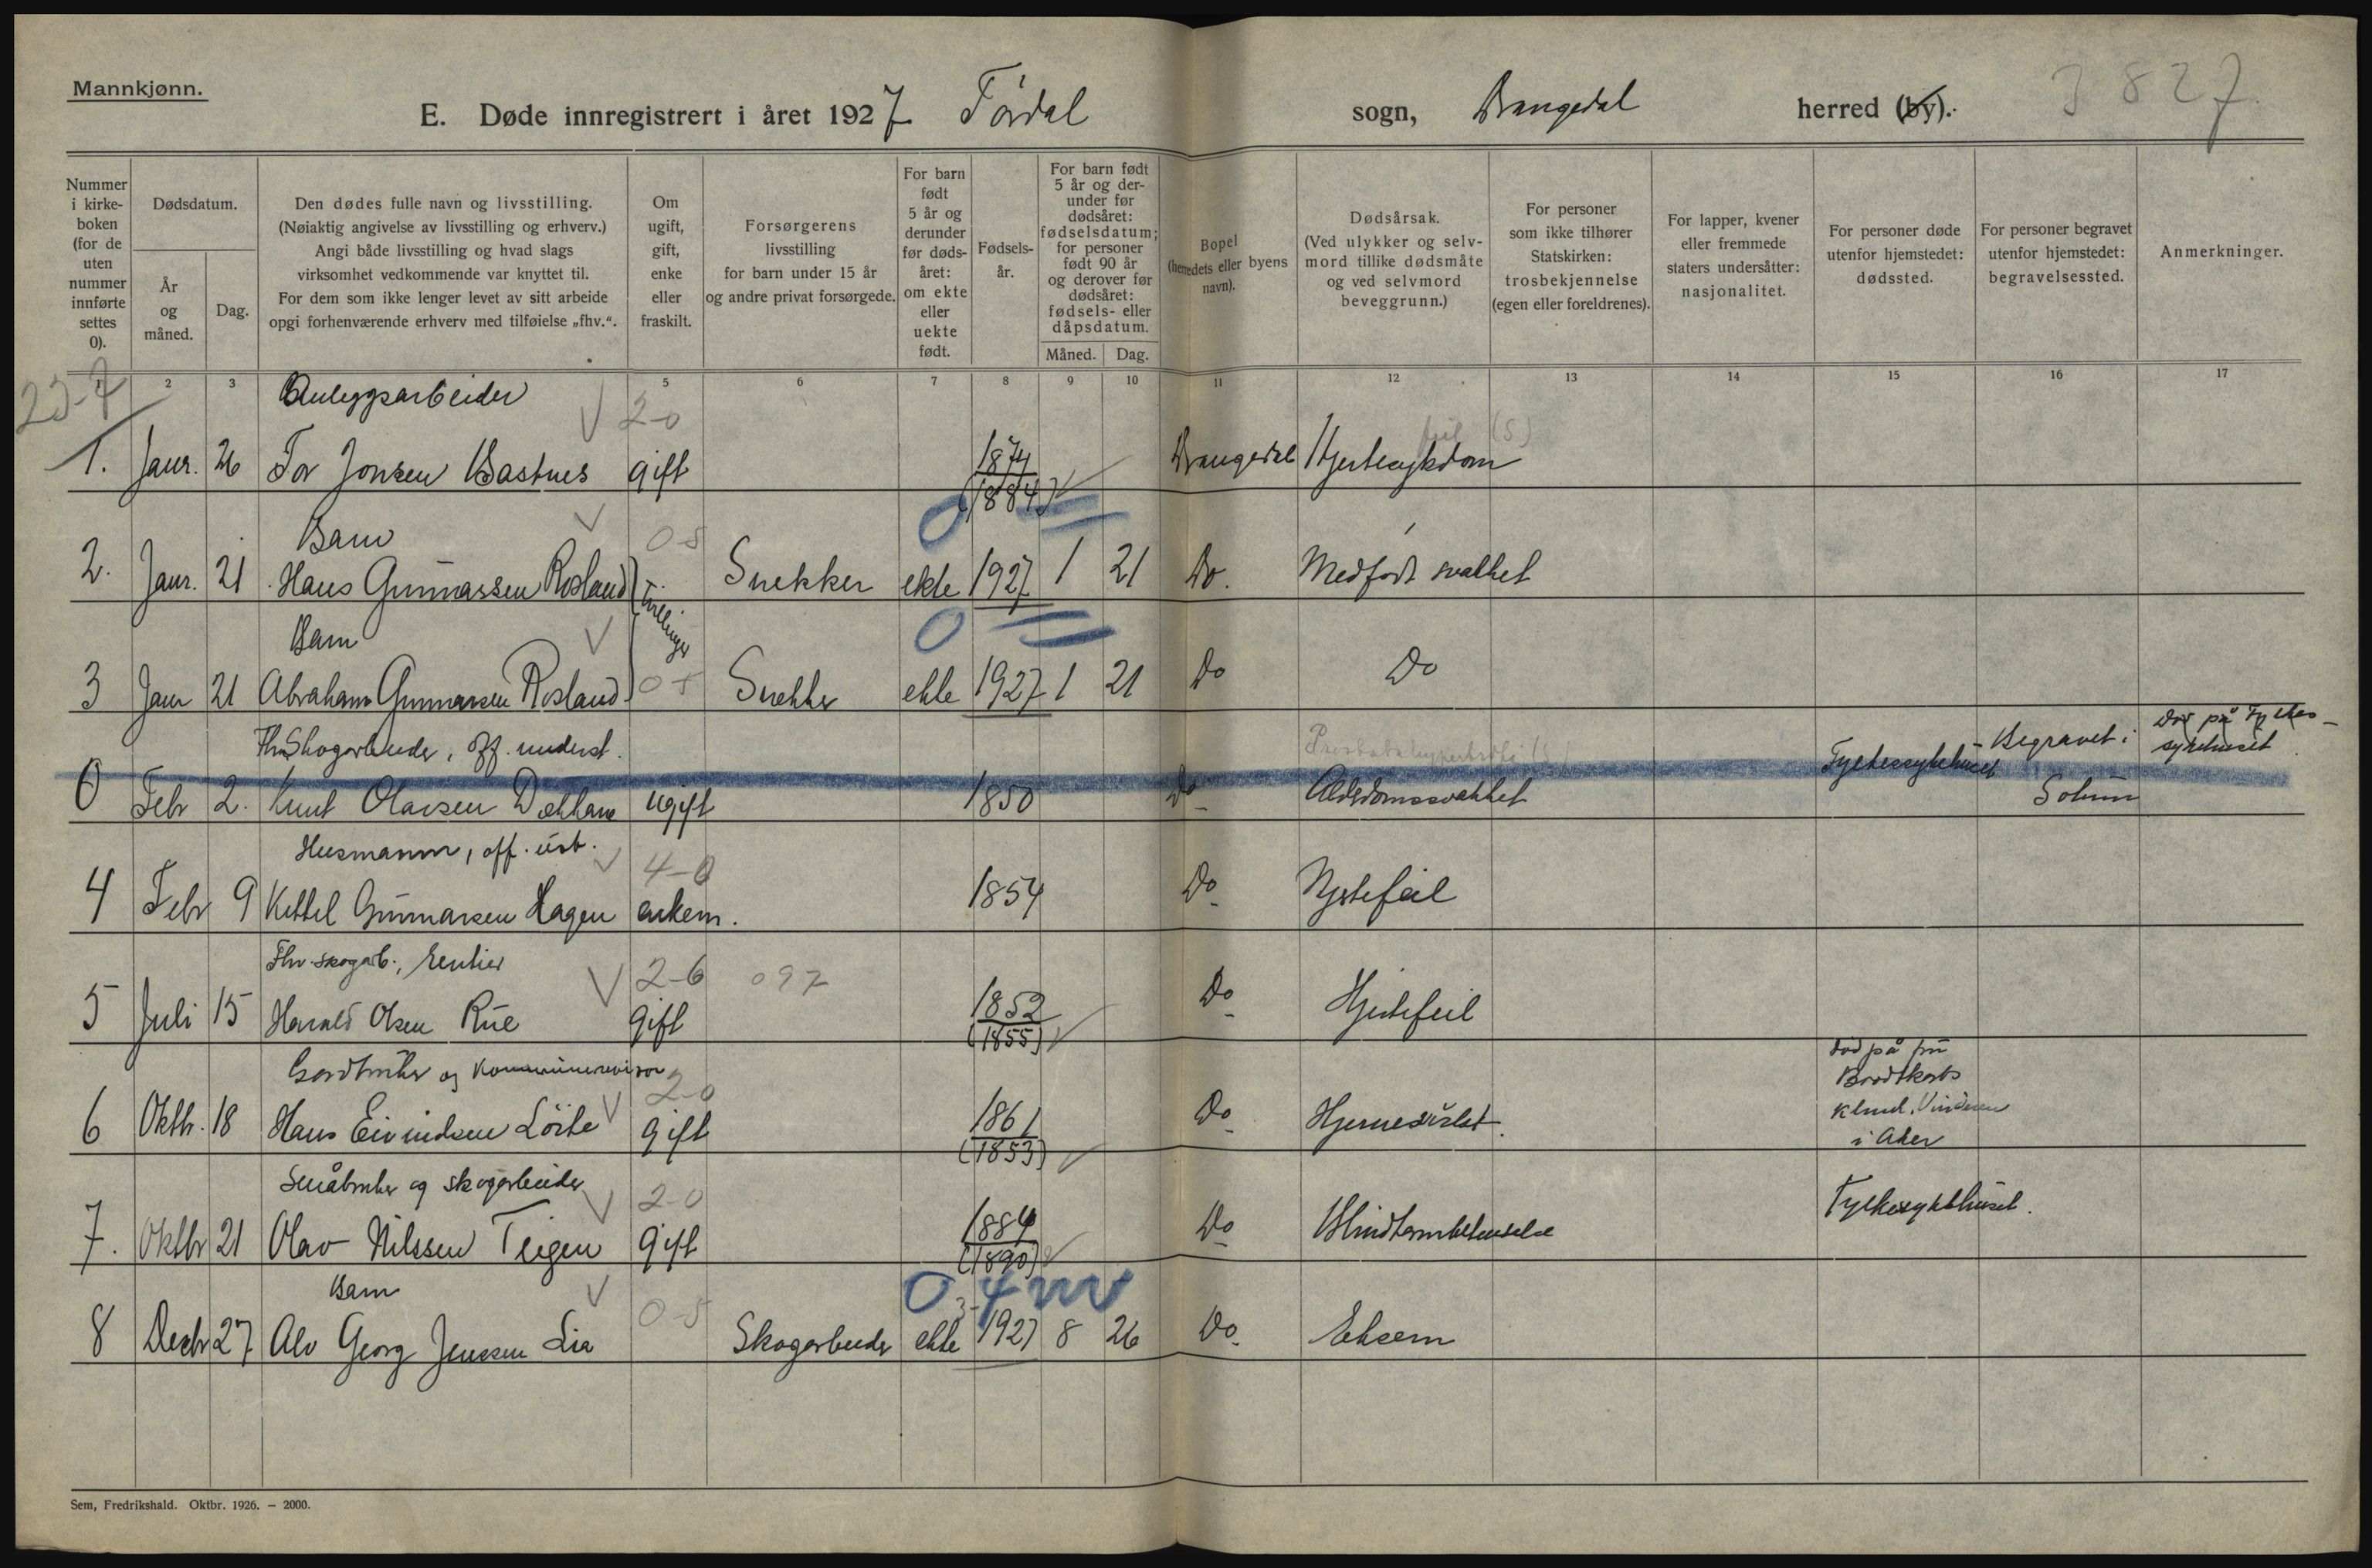 Mannkjønn.
E. Døde innregistrert i året 1927 Tørdal sogn, Drangedal herred (by). 3827
Nummer i kirke-boken (for de uten nummer innførte settes 0).
Dødsdatum.
År og måned.
Dag.
Den dødes fulle navn og livsstilling.
(Nøiaktig angivelse av livsstilling og erhverv.)
Angi både livsstilling og hvad slags
virksomhet vedkommende var knyttet til.
For dem som ikke lenger levet av sitt arbeide
opgi forhenværende erhverv med tilføielse „fhv.“.
Om ugift, gift, enke eller fraskilt.
Forsørgerens
livsstilling
for barn under 15 år
og andre privat forsørgede.
For barn født 5 år og derunder før døds-året: om ekte eller uekte født.
Fødsels-år.
For barn født 5 år og der-under før dødsåret: fødselsdatum; for personer født 90 år og derover før dødsåret: fødsels- eller dåpsdatum.
Måned. Dag.
Bopel
(herredets eller byens
navn).
Dødsårsak.
(Ved ulykker og selv-
mord tillike dødsmåte
og ved selvmord
beveggrunn.)
For personer
som ikke tilhører
Statskirken:
trosbekjennelse
(egen eller foreldrenes).
For lapper, kvener
eller fremmede
staters undersåtter:
nasjonalitet.
For personer døde
utenfor hjemstedet:
dødssted.
For personer begravet
utenfor hjemstedet:
begravelsessted.
Anmerkninger.
1 2 3 5 6 7 8 9 10 11 12 13 14 15 16 17
Anleggsarbeider 2-0
1. Janr. 26 Tor Jonsen Bastnes gift 1874 (1884) Drangedal Hjertesykdom
Barn 0-5
2. Janr. 21 Hans Gunnarssen Rosland Tvillinger Snekker ekte 1927 1 21 Do. Medfødt svakhet
Barn
3 Janr 21 Abraham Gunnarsen Rosland 0-5 Snekker ekte 1927 1 21 Do Do
Fhv. Skogarbeider, off. underst.
0 Febr 2. Knut Olavsen Dækkane ugift 1850 Do Alderdomssvakhet Fylkessykehuset Begravet i Solum Død på Fylkes-sykehuset
Husmann, off. ust. 4-0
4 Febr 9 Kittel Gunnarsen Hagen enkem. 1854 Do Hjertefeil
Fhv. skogarb., rentier 2-6 097
5 Juli 15 Harald Olsen Rue gift 1852 (1855) Do Hjertefeil
Gardbruker og kommunerevisor 2-0
6 Oktbr. 18 Hans Eivindsen Löite gift 1861 (1853) Do Hjernesvulst. død på fru Bordtkorbs klinik. Vinderen i Aker
Småbruker og skogarbeider 2-0
7. Oktbr 21 Olav Nilssen Teigen gift 1884 (1890) Do Blindtarmbetendelse Fylkessykehuset.
Barn 0-5
8 Decbr 27 Alv Georg Jenssen Lia Skogarbeider ekte 1927 8 26 Do Eksem
Sem, Fredrikshald. Oktbr. 1926. – 2000.